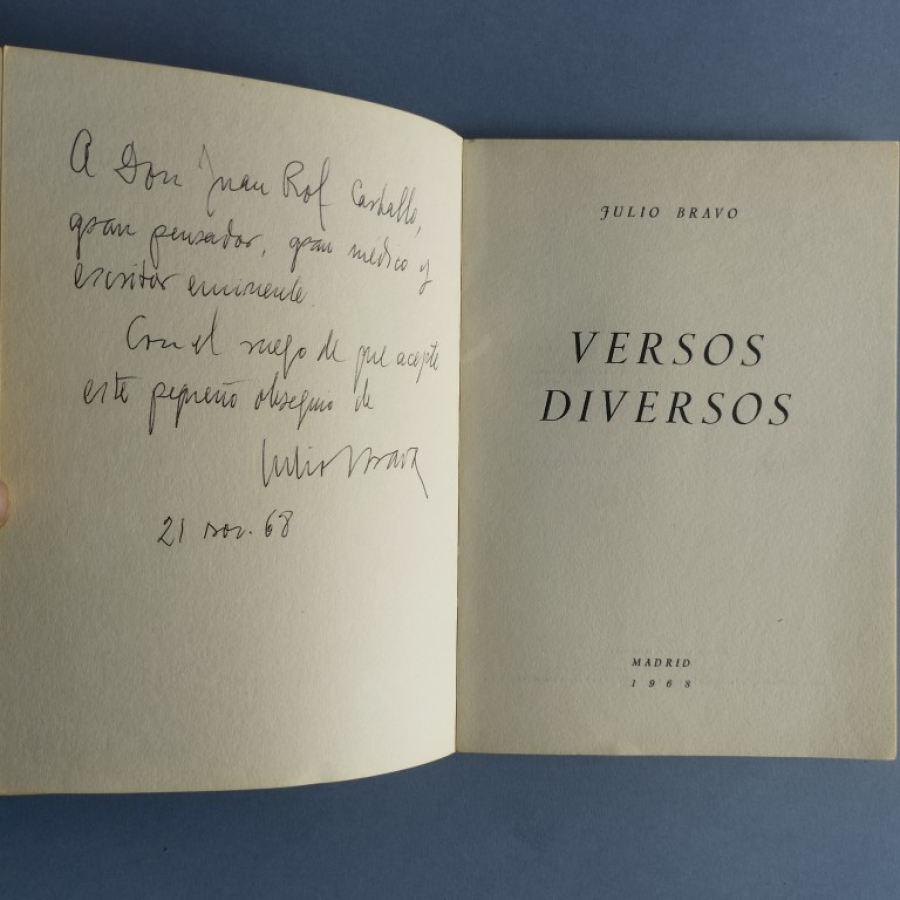 A Don Juan Rof Carballo,
gran pensador, gran médico y
escritor eminente.
Con el ruego de que acepte
este pequeño obsequio de
Julio Bravo
21 nov. 68
JULIO BRAVO
VERSOS
DIVERSOS
MADRID
1968